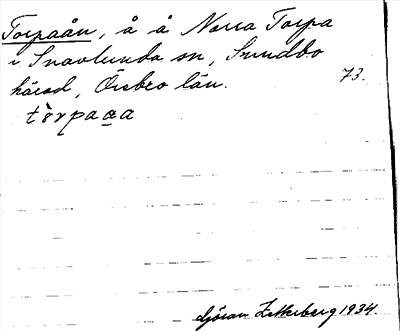 Torpaån, å å Norra Torpa
i Snavlunda sn, Sundbo
härad, Örebro län. 73.
tòrpaɑ̨a
Göran Zetterberg 1934.